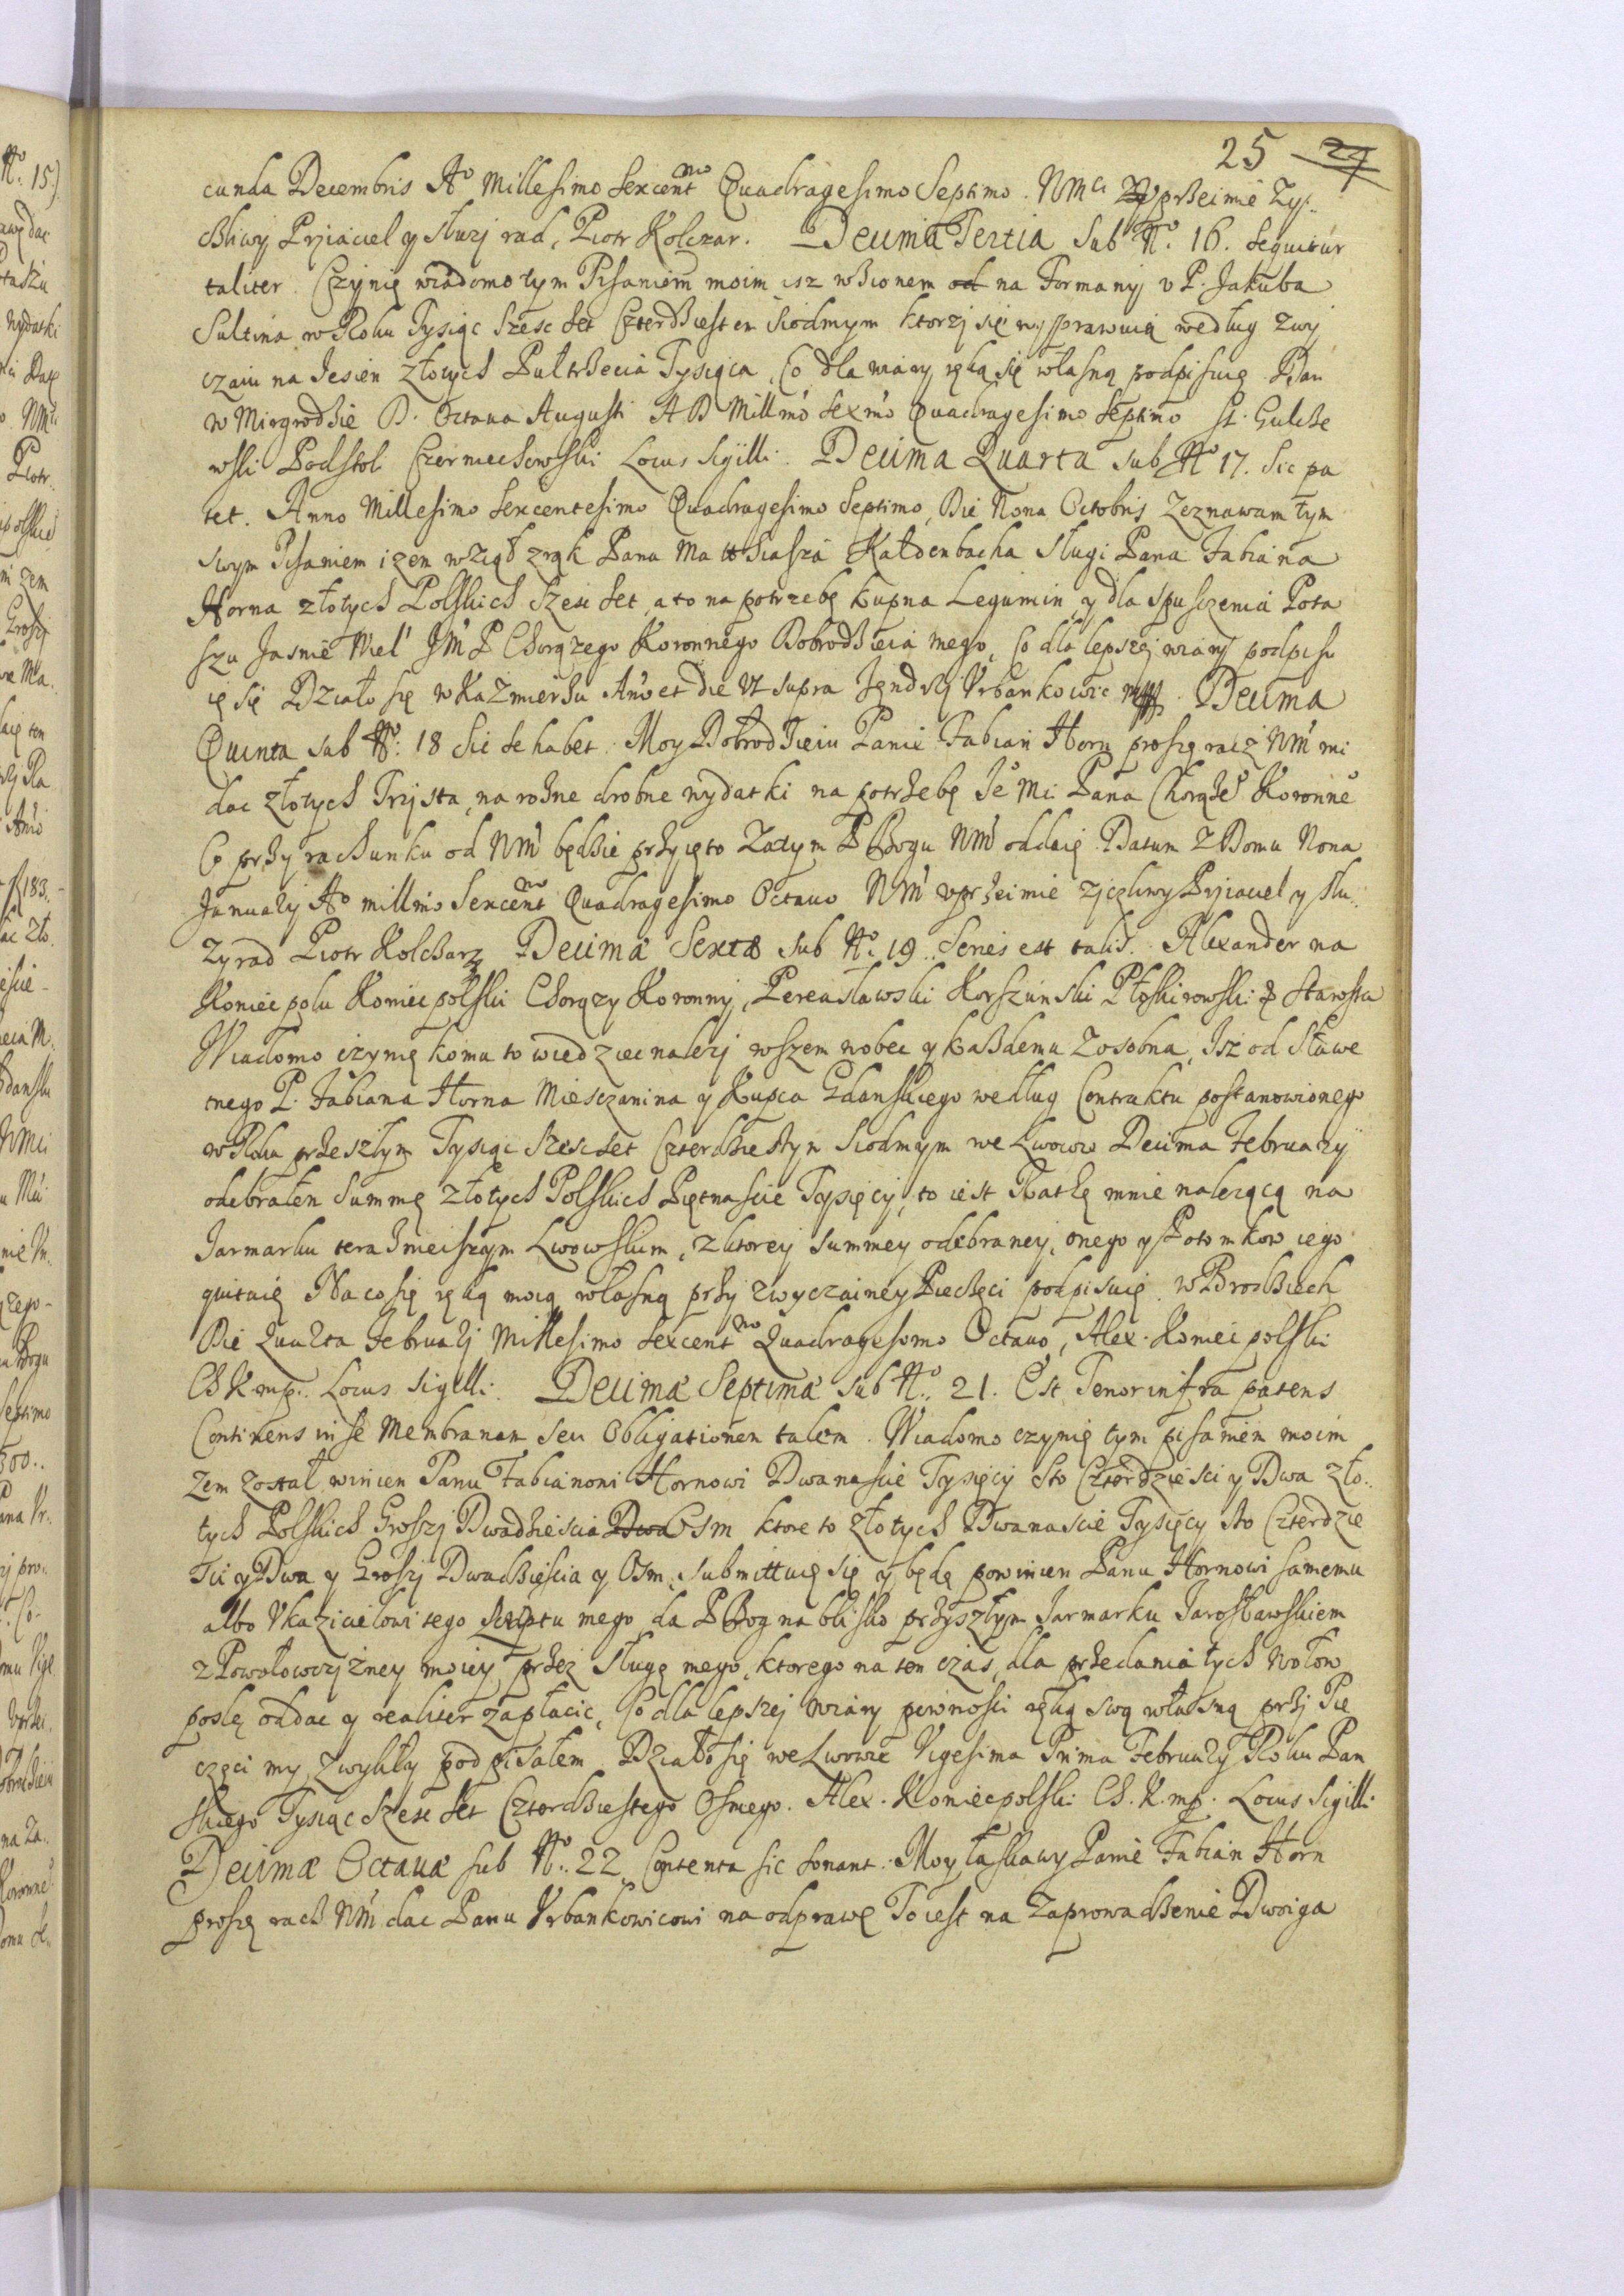 25 27
cunda Decembris Aº Millesimo Sexcentmo Quadragesimo Septimo. WMci Vprzeimie Zy:
czliwy Przÿiaciel y słuzÿ rad, Piotr Kolczar. Decima Tertia Sub Nº. 16. sequitur
taliter. Czynię wiadomo tym Pisaniem moim isz wziołem od na Formany v P. Jakuba
Sultina w Roku Tysiąc Szesc Set Czterdziestem siodmym ktorzj się wyprawuią według zwy
czaiu na Jesien złotych Pułtrzecia Tysiąca, Co dla wiary ręką się własną podpisuię. Dan
w Mirgrodzie D. Octaua Augusti A D Millmo sexmo Quadragesimo Septimo St. Gulcze
wski Podstoli Czerniechowski Locus Sigilli. Decima Quarta sub Nº 17. Sic pa
tet. Anno Millesimo Sexcentesimo Quadragesimo Septimo, Die Nona Octobris Zeznawam tym
swym Pisaniem izem wziął z rąk Pana Matthiasza Kaldenbacha sługi Pana Fabiana
Horna złotych Polskich Szesc Set, a to na potrzebę kupna Legumin, y dla spusczenia Pota
szu Jasnie Wiel JM P Chorązego Koronnego Dobrodzieia mego, Co dla lepszej wiary podpisu
ię się Działo się w Kazmierzu Anno et die Vt supra Jędrzÿ Vrbankowic mp. Decima
Quinta sub Nº: 18 Sic se habet. Moy Dobrodzieiu Panie Fabian Horn proszę racz WM mi
dac złotych Trzysta, na rożne drobne wydatki na potrzebę Je Mci Pana Chorąże Koronne
Co przy rachunku od WM będzie przyięto Zatym P Bogu WM oddaię. Datum z Domu Nona
January Aº millmo Sexcentmo Quadragesimo Octauo WM vprzeimie zyczliwy Przyiaciel y słu:
zy rad Piotr Kolcharz Decima Sexta sub Nº. 19. Series est talis. Alexander na
Koniecpolu Koniecpolski Chorązy Koronny, Pereasławski Korszunski Płoskirowski & Starosta
Wiadomo czynię komu to wiedziec nalezj wszem wobec y każdemu Zosobna, Isz od Sławe
tnego P. Fabiana Horna Miesczanina y Kupca Gdanskiego według Contraktu postanowionego
w Roku przeszłym Tysiąc Szescset Czterdziestym Siodmym we Lwowie Decima February
odebrałem Summę złotych Polskich Piętnascie Tysięcy, to iest Ratę mnie nalezącą na
Jarmarku terazneiszym Lwowskim, z ktorey summey odebraney, onego y Potomkow iego
quituię Na co się ręką moią własną przy zwyczainey Pieczęci podpisuię. w Brodziech
Die Quarta Februarj Millesimo Sexcentmo Quadragesomo Octauo, Alex. Koniecpolski
Ch K mp. Locus Sigilli. Decima Septima sub Nº. 21. Est Tenor infra patens
Continens in se Membranam seu Obligationem talem. Wiadomo czynię tym pisaniem moim
zem został winien Panu Fabianowi Hornowi Dwanascie Tysięcy Sto Czterdziesci y Dwa zło:
tych Polskich Groszj Dwadziescia Dwa Osm ktore to złotych Dwanascie Tysięcy sto Czterdzie
sci y Dwa y Groszj Dwadziescia y Osm, submittuię się y będę powinien Panu Hornowi samemu
albo Vkazicielowi tego scriptu mego da P Bog na blisko przyszłym Jarmarku Jarosławskiem
z Powołowczyzney moiey przez sługę mego, ktorego na ten czas dla przedania tych Wołow
poslę oddac y realiter zapłacic, Co dla lepszej wiary pewnosci ręką swą własną przj Pie
częci my zwykły podpisałem. Działo się we Lwowie Vigesima Prima February Roku Pan
skiego Tysiąc Szesc Set Czterdziestego Osmego. Alex. Koniecpolski Ch. K. mp. Locus Sigilli
Decima Octaua sub Nº. 22. Contenta sic sonant. Moy łaskawy Panie Fabian Horn
proszę racz WM dac Panu Vrbankowicowi na odprawę To iest na Zaprowadzenie Dwoiga